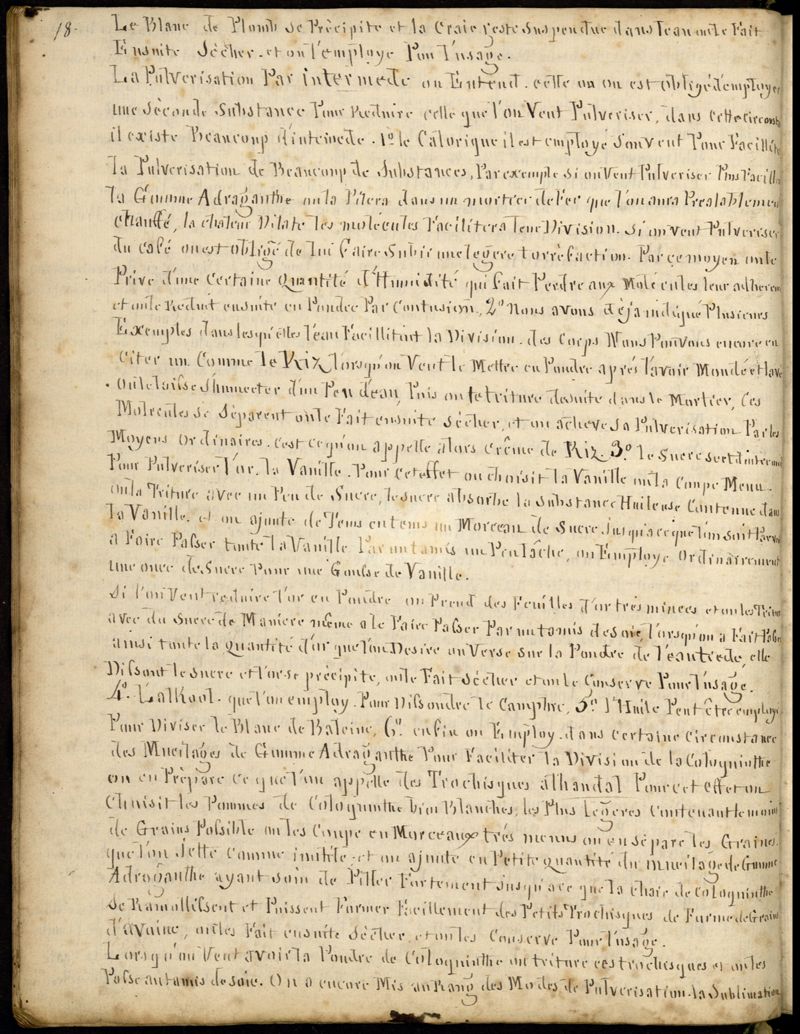 18.
Le Blanc de Plomb se Précipite et la Craie reste suspendue dans leau on le Fait
Ensuite Sècher. et on l'employe Pour l'usage.
La Pulverisation Par intermede on Entend. celle ou on est obligé d'employer
une Séconde Substance Pour Reduire celle que l'on Veut Pulveriser, dans cette
il existe Beaucoup d'intermede. 1o. le Calorique il est employé Souvent Pour Facilité
la Pulverisation de Beaucoup de Substances, Par exemple Si on Veut Pulveriser Plus Facill
la Gomme Adraganthe on la Pilera dans un mortier de Fer que l'on aura Prealablemen
chauffé, la chaleur Dilate les molécules Facilitera leur Division. Si on veut Pulveriser
du café on est obligé de lui Faire Subir une legere torréfaction. Par ce moyen on le
Prive d'une Certaine Quantité d'Humidité qui Fait Perdre aux Molécules leur adheren
et on le Reduit ensuite en Poudre Par Contusion, 2o. Nous avons déja indiqué Plusieurs
Exemples dans lesquelles l'eau Facillitait la Division. des Corps Nous Pouvons encore en
Citer un Comme le Riz, lorsqu'on Veut le Mettre en Poudre après l'avoir Mondé et lavé
on le laisse S'humecter d'un Peu d'eau, Puis on le triture desuite dans le Mortier, Ces
Molécules se Séparent on le Fait ensuite Sècher, et on acheve Sa Pulverisation Par les
Moyens Ordinaires. c'est ce qu'on appelle alors Crême de Riz 3o. le Sucre sert d'interme
Pour Pulveriser l'or, la Vanille. Pour cet effet on choisit la Vanille on la Coupe Menu.
on la Triture avec un Peu de Sucre, le sucre absorbe la Substance Huileuse Contenue dans
la Vanille. et on ajoute de Tems en tems un Morceau de Sucre Jusqu'a ce que l'on soit Parve
a Faire Passer toute la Vanille Par un tamis un Peu lâche, on Employe Ordinairement
une once de Sucre Pour une Gousse de Vanille.
Si l'on Veut reduire l'or en Poudre on Prend des Feuilles d'or très minces et on les Tritu
avec du Sucre de Maniere même a le Faire Passer Par un tamis de Soie, lorsqu'on a Fait Passé
ainsi toute la quantité d'or que l'on Desire on Verse sur la Poudre de l'eau tiede, elle
Dissout le Sucre et l'or se précipite, on le Fait Sècher et on le Conserve Pour l'usage.
4o. L'alkool. que l'on employ. Pour Dissoudre le Camphre, 5o. l'Huile Peut être employé
Pour Diviser le Blanc de Baleine, 6o. enfin on Employ. dans certaine Circonstance
des Mucilages de Gomme Adraganthe Pour Faciliter la Division de la Coloquinthe
on en Prépare ce que l'on appelle des Trochisques alhandal Pour cet effet on
Choisit les Pommes de Coloquinthe bien Blanches, les Plus Légères Contenant le moin
de Grains Possible on les Coupe en Morceaux très menus on en sépare les Graines
que l'on Jette Comme inutile. et on ajoute en Petite quantité du mucilage de Gomme
Adraganthe ayant soin de Piller Fortement Jusqu'a ce que la Chair de Coloquinthe
Se Ramollissent et Puissent Former Facillement des Petits Trochisques de Forme de Grain
d'avoine, on les Fait ensuite Sècher, et on les Conserve Pour l'usage.
Lorsqu'on Veut avoir la Poudre de Coloquinthe on triture ces trochisques et on les
Passe au tamis de Soie. On a encore Mis au Rang des Modes de Pulverisation la Sublimation